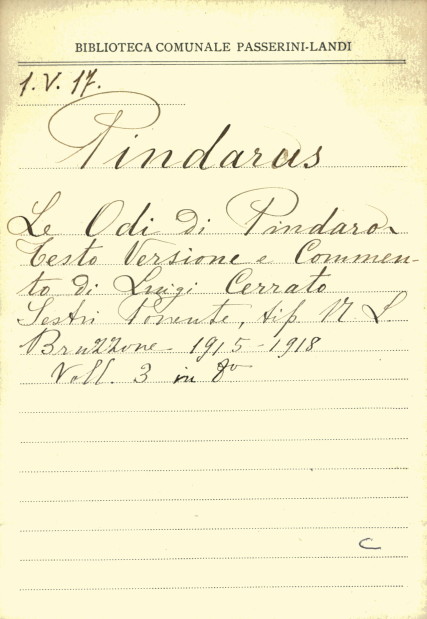 BIBLIOTECA COMUNALE PASSERINI-LANDI
1.V.17.
Pindarus
Le Odi di Pindaro
Testo Versione e Commen-
to di Luigi Cerrato
Sestri Ponente, tip.
Bruzzone - 1915-1918
Voll. 3 in 8º
C